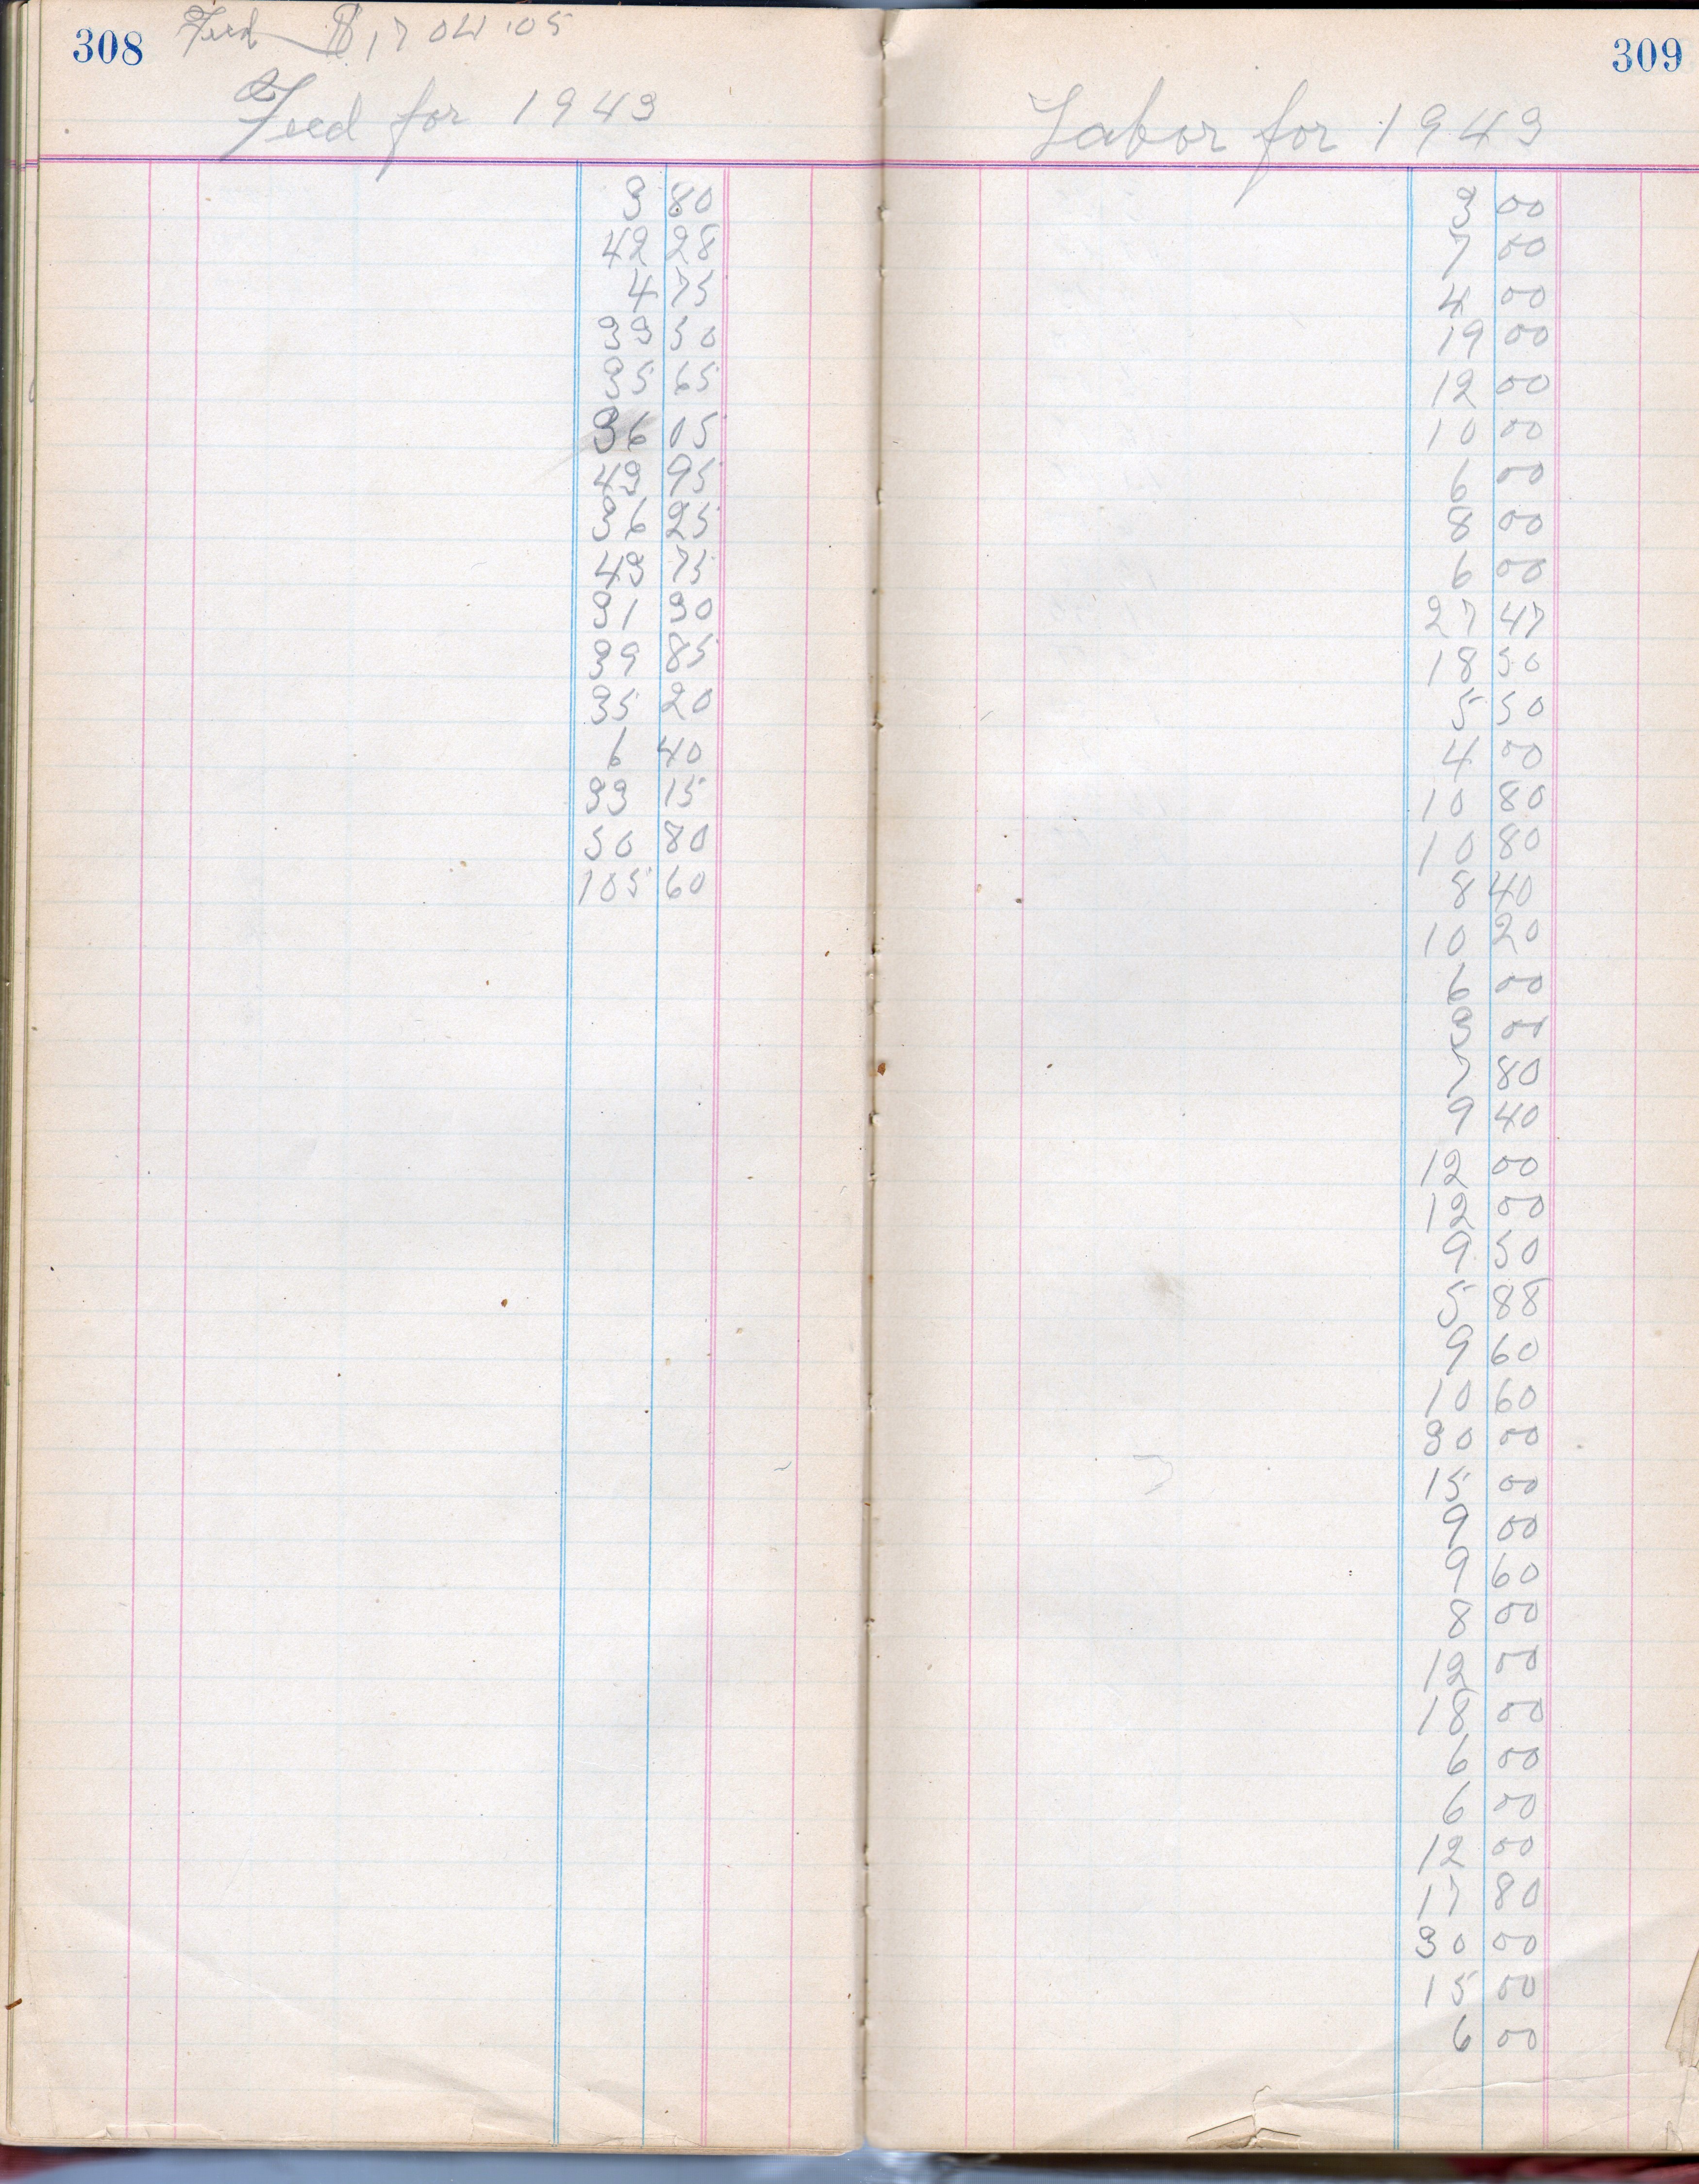 308
Feed $1,704.05
Feed for 1943
3 80
42 28
4 75
33 50
35 65
36 05
43 95
36 25
43 75
31 30
39 85
35 20
6 40
33 15
50 80
105 60
309
Labor for 1943
3 00
7 00
4 00
19 00
12 00
10 00
6 00
8 00
6 00
27 47
18 50
5 50
4 00
10 80
10 80
8 40
10 20
6 00
3 00
7 80
9 40
12 00
12 00
9 50
5 88
9 60
10 60
30 00
15 00
9 00
9 60
8 00
12 00
18 00
6 00
6 00
12 00
17 80
30 00
15 00
6 00